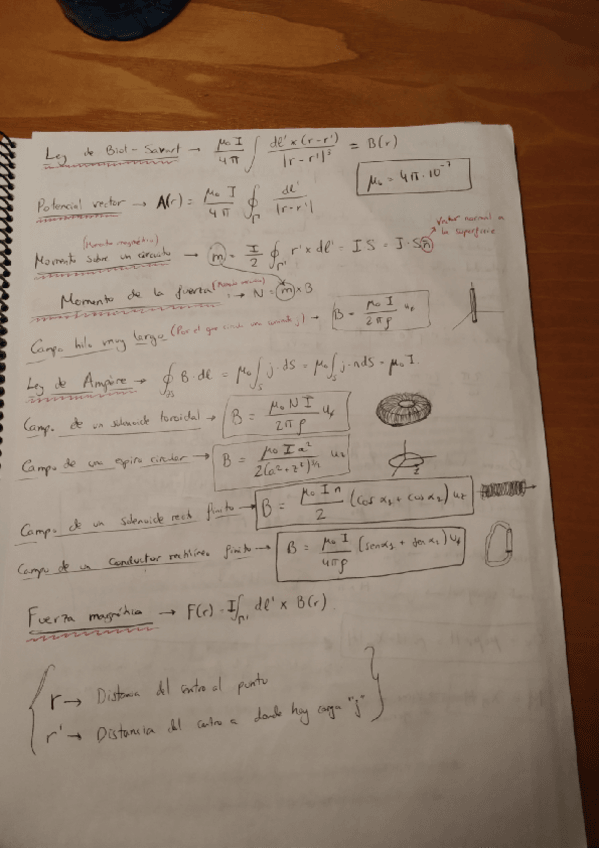 Ley de Biot-Savart → μ₀ I / 4π ∫ dl' × (r-r') / |r-r'|³ = B(r)
μ₀ = 4π·10⁻⁷
Potencial vector → A(r) = μ₀ I / 4π ∮_Γ' dl' / |r-r'|
Vector normal a la superficie
(Momento magnético)
Momento sobre un circuito → m = I/2 ∮_Γ' r' × dl' = I S = I·S n̂
Momento de la fuerza → N = m × B
Campo hilo muy largo (Por el que circula una) → B = μ₀ I / 2πρ
Ley de Ampère → ∮ B·dl = μ₀ ∫_S j·dS = μ₀ ∫_S j·n dS = μ₀ I.
Campo de un solenoide toroidal → B = μ₀ N I / 2πρ u_φ
Campo de una espira circular → B = μ₀ I a² / 2(a²+z²)^3/2 u_z
z
Campo de un solenoide recto finito → B = μ₀ I n / 2 (cos α₁ + cos α₂) u_z
Campo de un conductor rectilíneo finito → B = μ₀ I / 4πρ (sen α₁ + sen α₂) u_φ
Fuerza magnética → F(r) = I ∫_Γ' dl' × B(r).
r → Distancia del centro al punto
r' → Distancia del centro a donde hay carga "j"